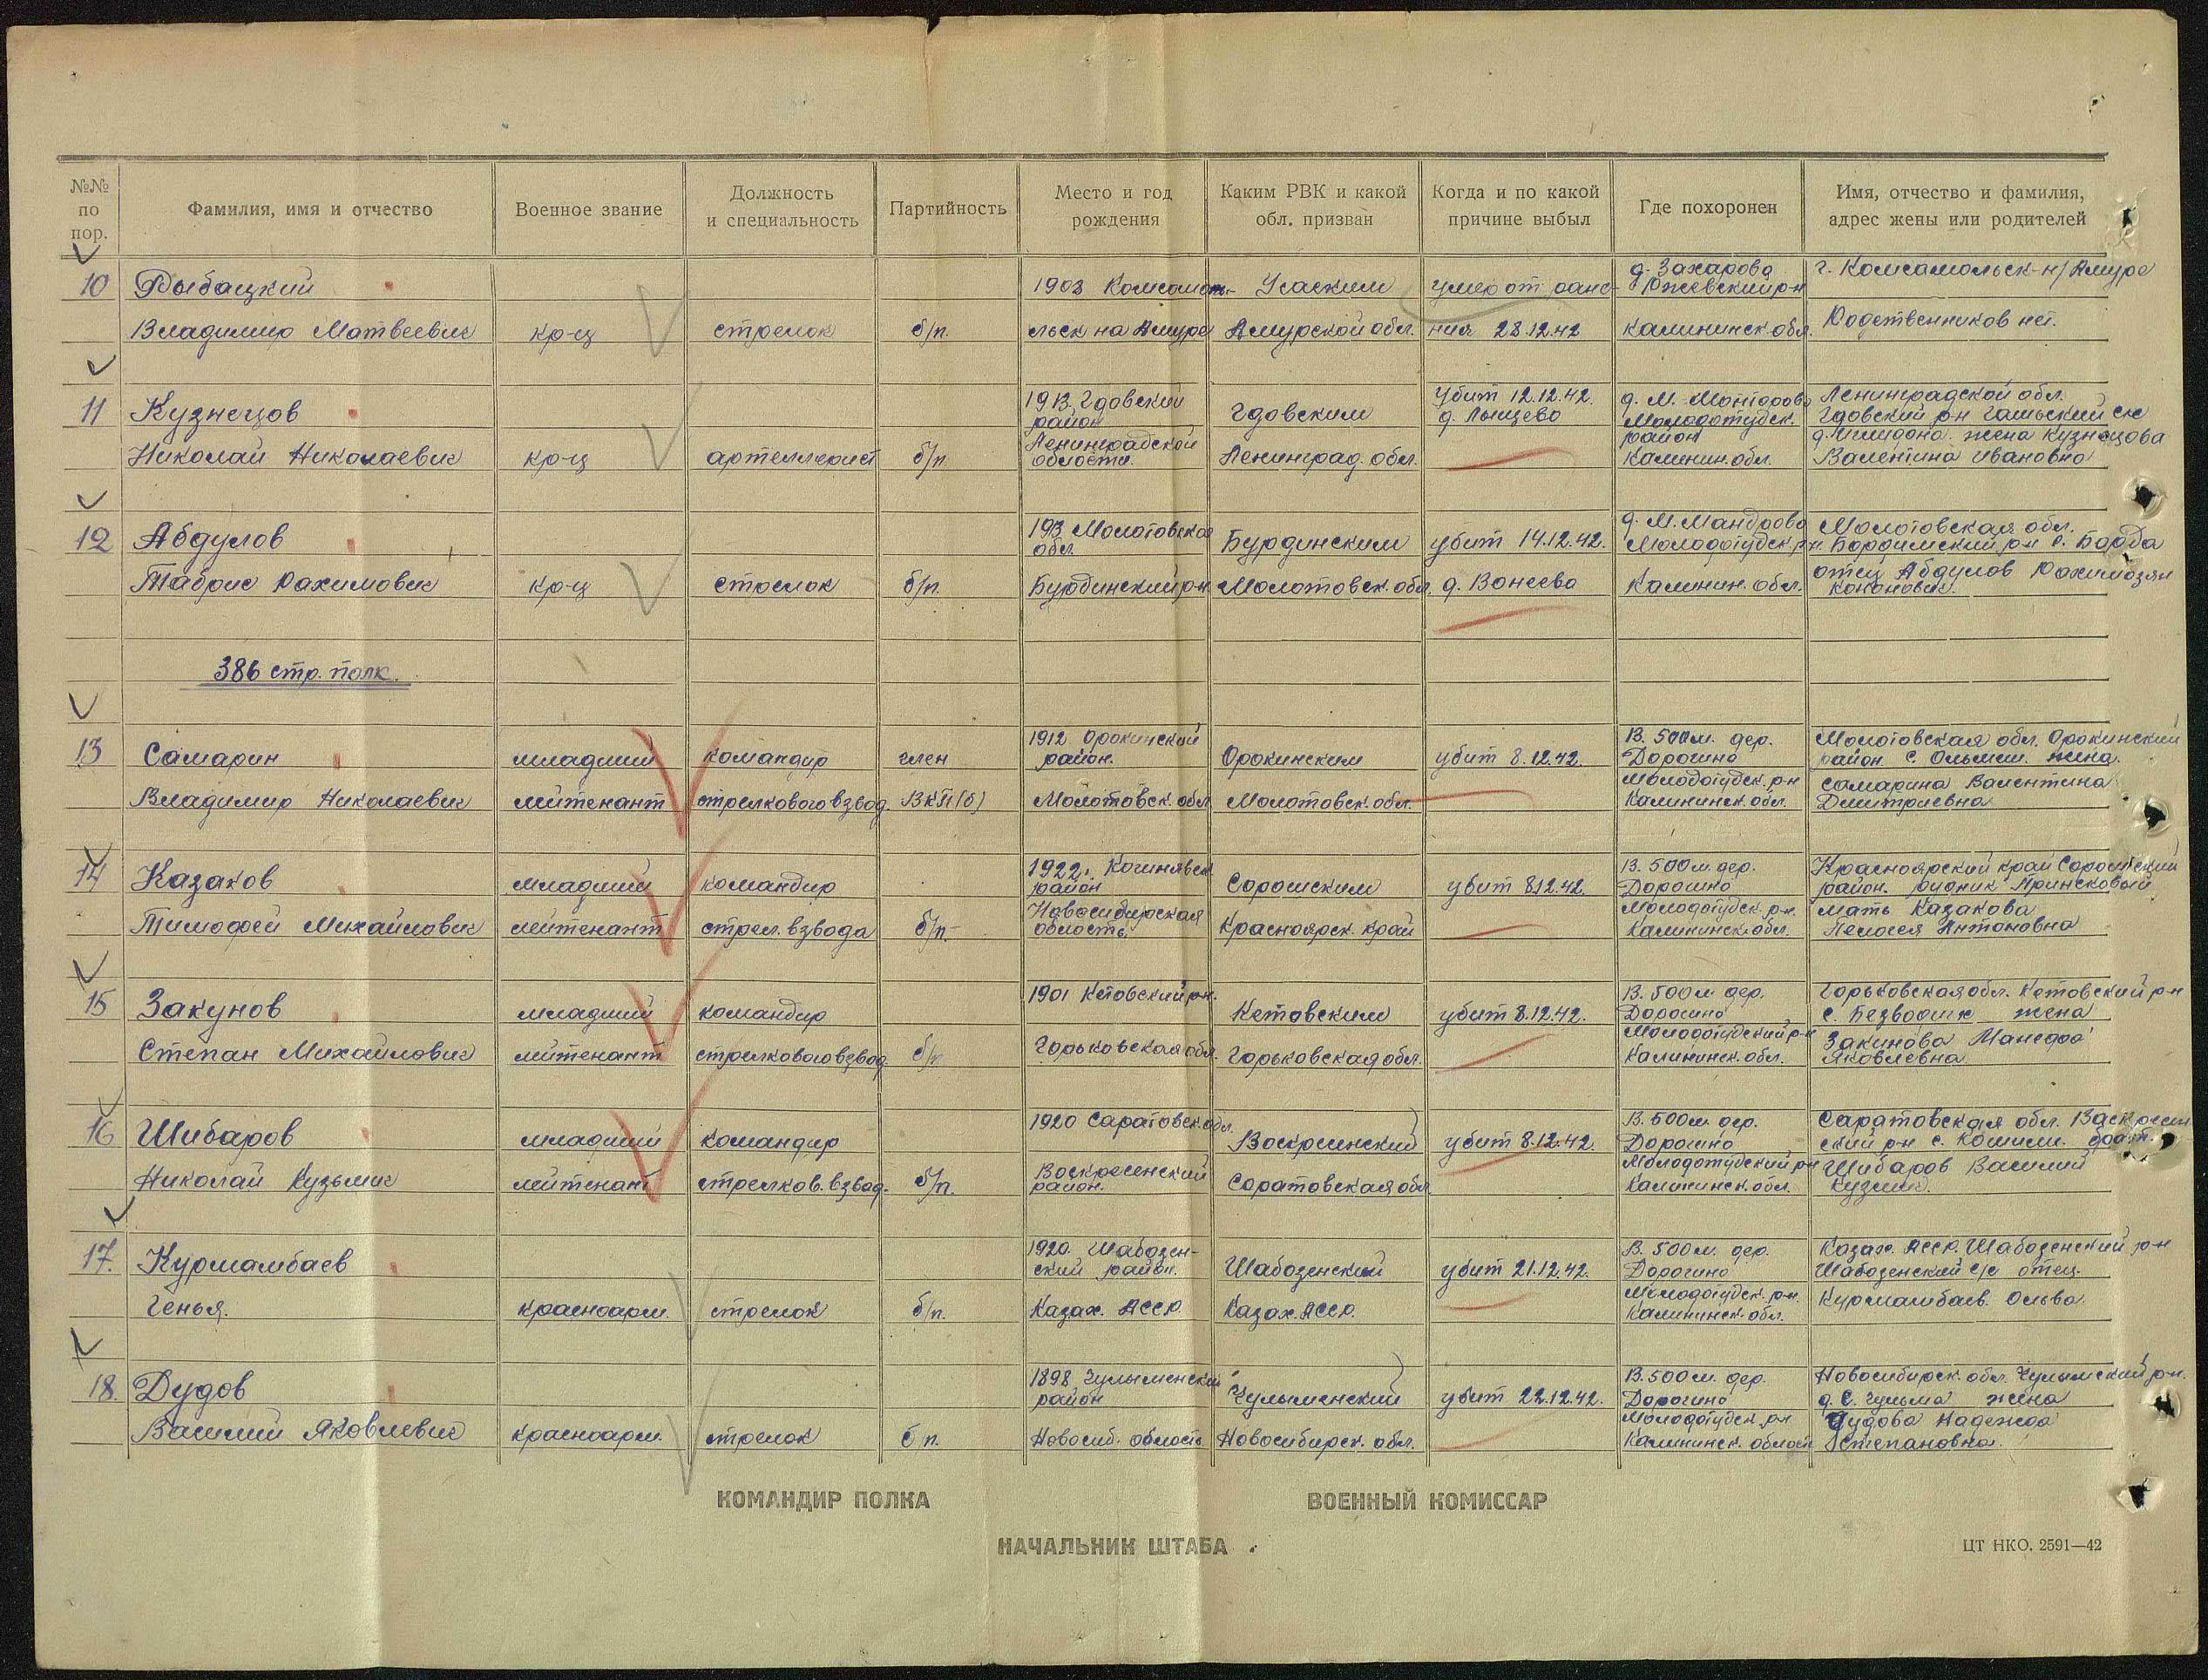 №№ по пор.
Фамилия, имя и отчество
Военное звание
Должность и специальность
Партийность
Место и год рождения
Каким РВК и какой обл. призван
Когда и по какой причине выбыл
Где похоронен
Имя, отчество и фамилия, адрес жены или родителей
10 Рыбацкий 1903 Комсомо- умер от ране- д. Захарово г. Комсамольск-н/Амуре
Ржевский р-н
Владимир Матвеевич кр-ц стрелок б/п. льск на Амуре Амурской обл. ния 28.12.42 Калининск обл. Родственников нет.
11 Кузнецов 1913 Гдовский район Гдовским убит 12.12.42. д. Лыщево д. М. Молодотудск. район Ленинградской обл. Гдовский р-н
Николай Николаевич кр-ц артеллерист б/п Ленинградской области. Ленинград. обл. Калинин. обл. жена Кузнецова Валентина Ивановна
12 Абдулов 1913 Молотовская обл. Бурдинским убит 14.12.42. д. М. Мандрово Молодотудск. р-н Молотовская обл. Бардимский р-н с. Барда
Табрис Рахимович кр-ц стрелок б/п. Бурдинский р-н Молотовск. обл. д. Вонеево Калинин. обл. отец Абдулов
386 стр. полк.
13 Самарин младший командир член 1912 Орокинский район. Орокинским убит 8.12.42. В. 500 м. дер. Дорогино Молотовская обл. Орокинский район. с. жена
Владимир Николаевич лейтенант стрелкового взвод. ВКП(б) Молотовск. обл. Молотовск. обл. Молодотудск. р-н Калининск. обл. Самарина Валентина Дмитриевна
14 Казаков младший командир 1922 г. район Соромским убит 8.12.42. В. 500 м. дер. Дорогино Красноярский край район. рудник
Тимофей Михайлович лейтенант стрел. взвода б/п. Новосибирская область. Красноярск. край Молодотудск. р-н. Калининск. обл. мать Казакова Антоновна
15 Закунов младший командир 1901 Кетовский р-н. Кетовским убит 8.12.42. В. 500 м дер. Дорогино Горьковская обл. Кетовский р-н с. жена
Степан Михайлович лейтенант стрелкового взвод. б/п Горьковская обл. Горьковская обл. Молодотудский р-н Калининск. обл. Закинова Яковлевна
16 Шибаров младший командир 1920 Саратовск. обл. Воскрсинский убит 8.12.42. В. 500 м. дер. Дорогино Саратовская обл. ский р-н с.
Николай Кузьмич лейтенант стрелков. взвод. б/п. Воскресенский район. Соратовская обл. Молодотудский р-н Калининск. обл. Шибаров Василий Кузмич.
17. Курмамбаев 1920. Шабозен- ский район. Шабозенский убит 21.12.42. В. 500 м. дер. Дорогино Казах. АССР. Шабозенский р-н Шабозенский с/с отец.
Генья. красноарм. стрелок б/п. Казах. АССР. Казах. АССР. Молодотудск. р-н. Калининск. обл. Курмамбаев. Ольва.
18. Дудов 1898 Чулыменский район Чулыменский убит 22.12.42. В. 500 м. дер. Дорогино Новосибирск. обл. Чулымский р-н. жена
Василий Яковлевич красноарм. стрелок б п. Новосиб. область Новосибирск. обл. Молодотудск. р-н Калининск. област Дудова Надежда Степановна.
КОМАНДИР ПОЛКА
ВОЕННЫЙ КОМИССАР
НАЧАЛЬНИК ШТАБА
ЦТ НКО. 2591—42